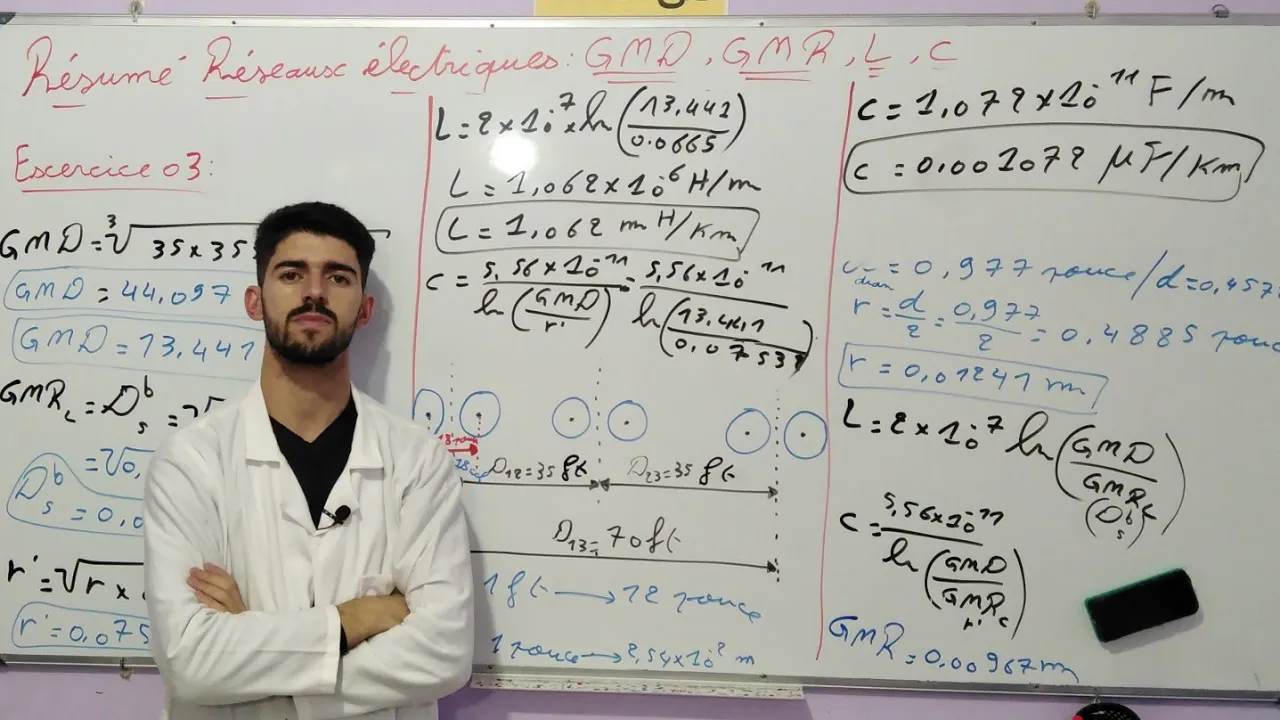 Résumé Réseaux électriques : GMD, GMR, L, C
Excercice 03:
GMD = ³√35 x 35
GMD = 44,097
GMD = 13,441
GMR_L = D_s^b = √
= √0,
D_s^b = 0,0
r' = √r x
r' = 0,075
L = 2 x 10^-7 x ln(13,441/0.0665)
L = 1,062 x 10^-6 H/m
L = 1,062 m H/Km
C = 5,56 x 10^-11/ln(GMD/r') = 5,56 x 10^-11/ln(13,441/0,07538)
18 pouce
D12 = 35 ft D23 = 35 ft
D13 = 70 ft
1 ft → 12 pouce
1 pouce → 2,54 x 10^-2 m
C = 1,072 x 10^-11 F/m
C = 0.001072 μF/Km
= 0,977 pouce / d = 0,457
r = d/2 = 0,977/2 = 0,4885 pouce
r = 0,01241 m
L = 2 x 10^-7 ln(GMD/GMR_L)
(D_s^b)
C = 5,56 x 10^-11/ln(GMD/GMR_C)
r'
GMR = 0,00967 m